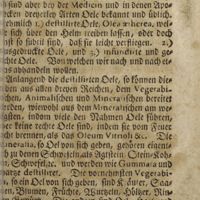 sind aber bey der Medicin und in denen Apo-
ecken dreyerley Arten Oele bekannt und üblich,
ehmlich 1.) destillirte Oele, Olea ætherea, wel-
sich über den Helm treiben lassen, oder doch
st so subtil sind, daß sie leicht verfliegen. 2.)
usgedruckte Oele, und 3.) infundirte und ge-
chte Oele. Von welchen wir nach und nach et-
s abhandeln wollen.
Anlangend die destillirten Oele, so können die-
en aus allen dreyen Reichen, dem Vegetabi-
en, Animalischen und Mineralischen bereitet
erden, wiewohl aus dem Mineralischen am we-
gsten, indem viele den Nahmen Oele führen,
er keine rechte Oele sind, indem sie vom Feuer
cht brennen, als das Oleum Vitrioli &c. Die
ineralia, so Oel von sich geben, gehören eigent-
h zu denen Schwefeln, als Agtstein, Stein-Koh-
n, Schwefel, &c. und werden die Gummata und
hartze destilliret. Die vornehmsten Vegetabi-
a, so ein Oel von sich geben, sind Kräuter, Saa-
en, Blumen, Früchte, Wurtzeln, Höltzer, Rin-